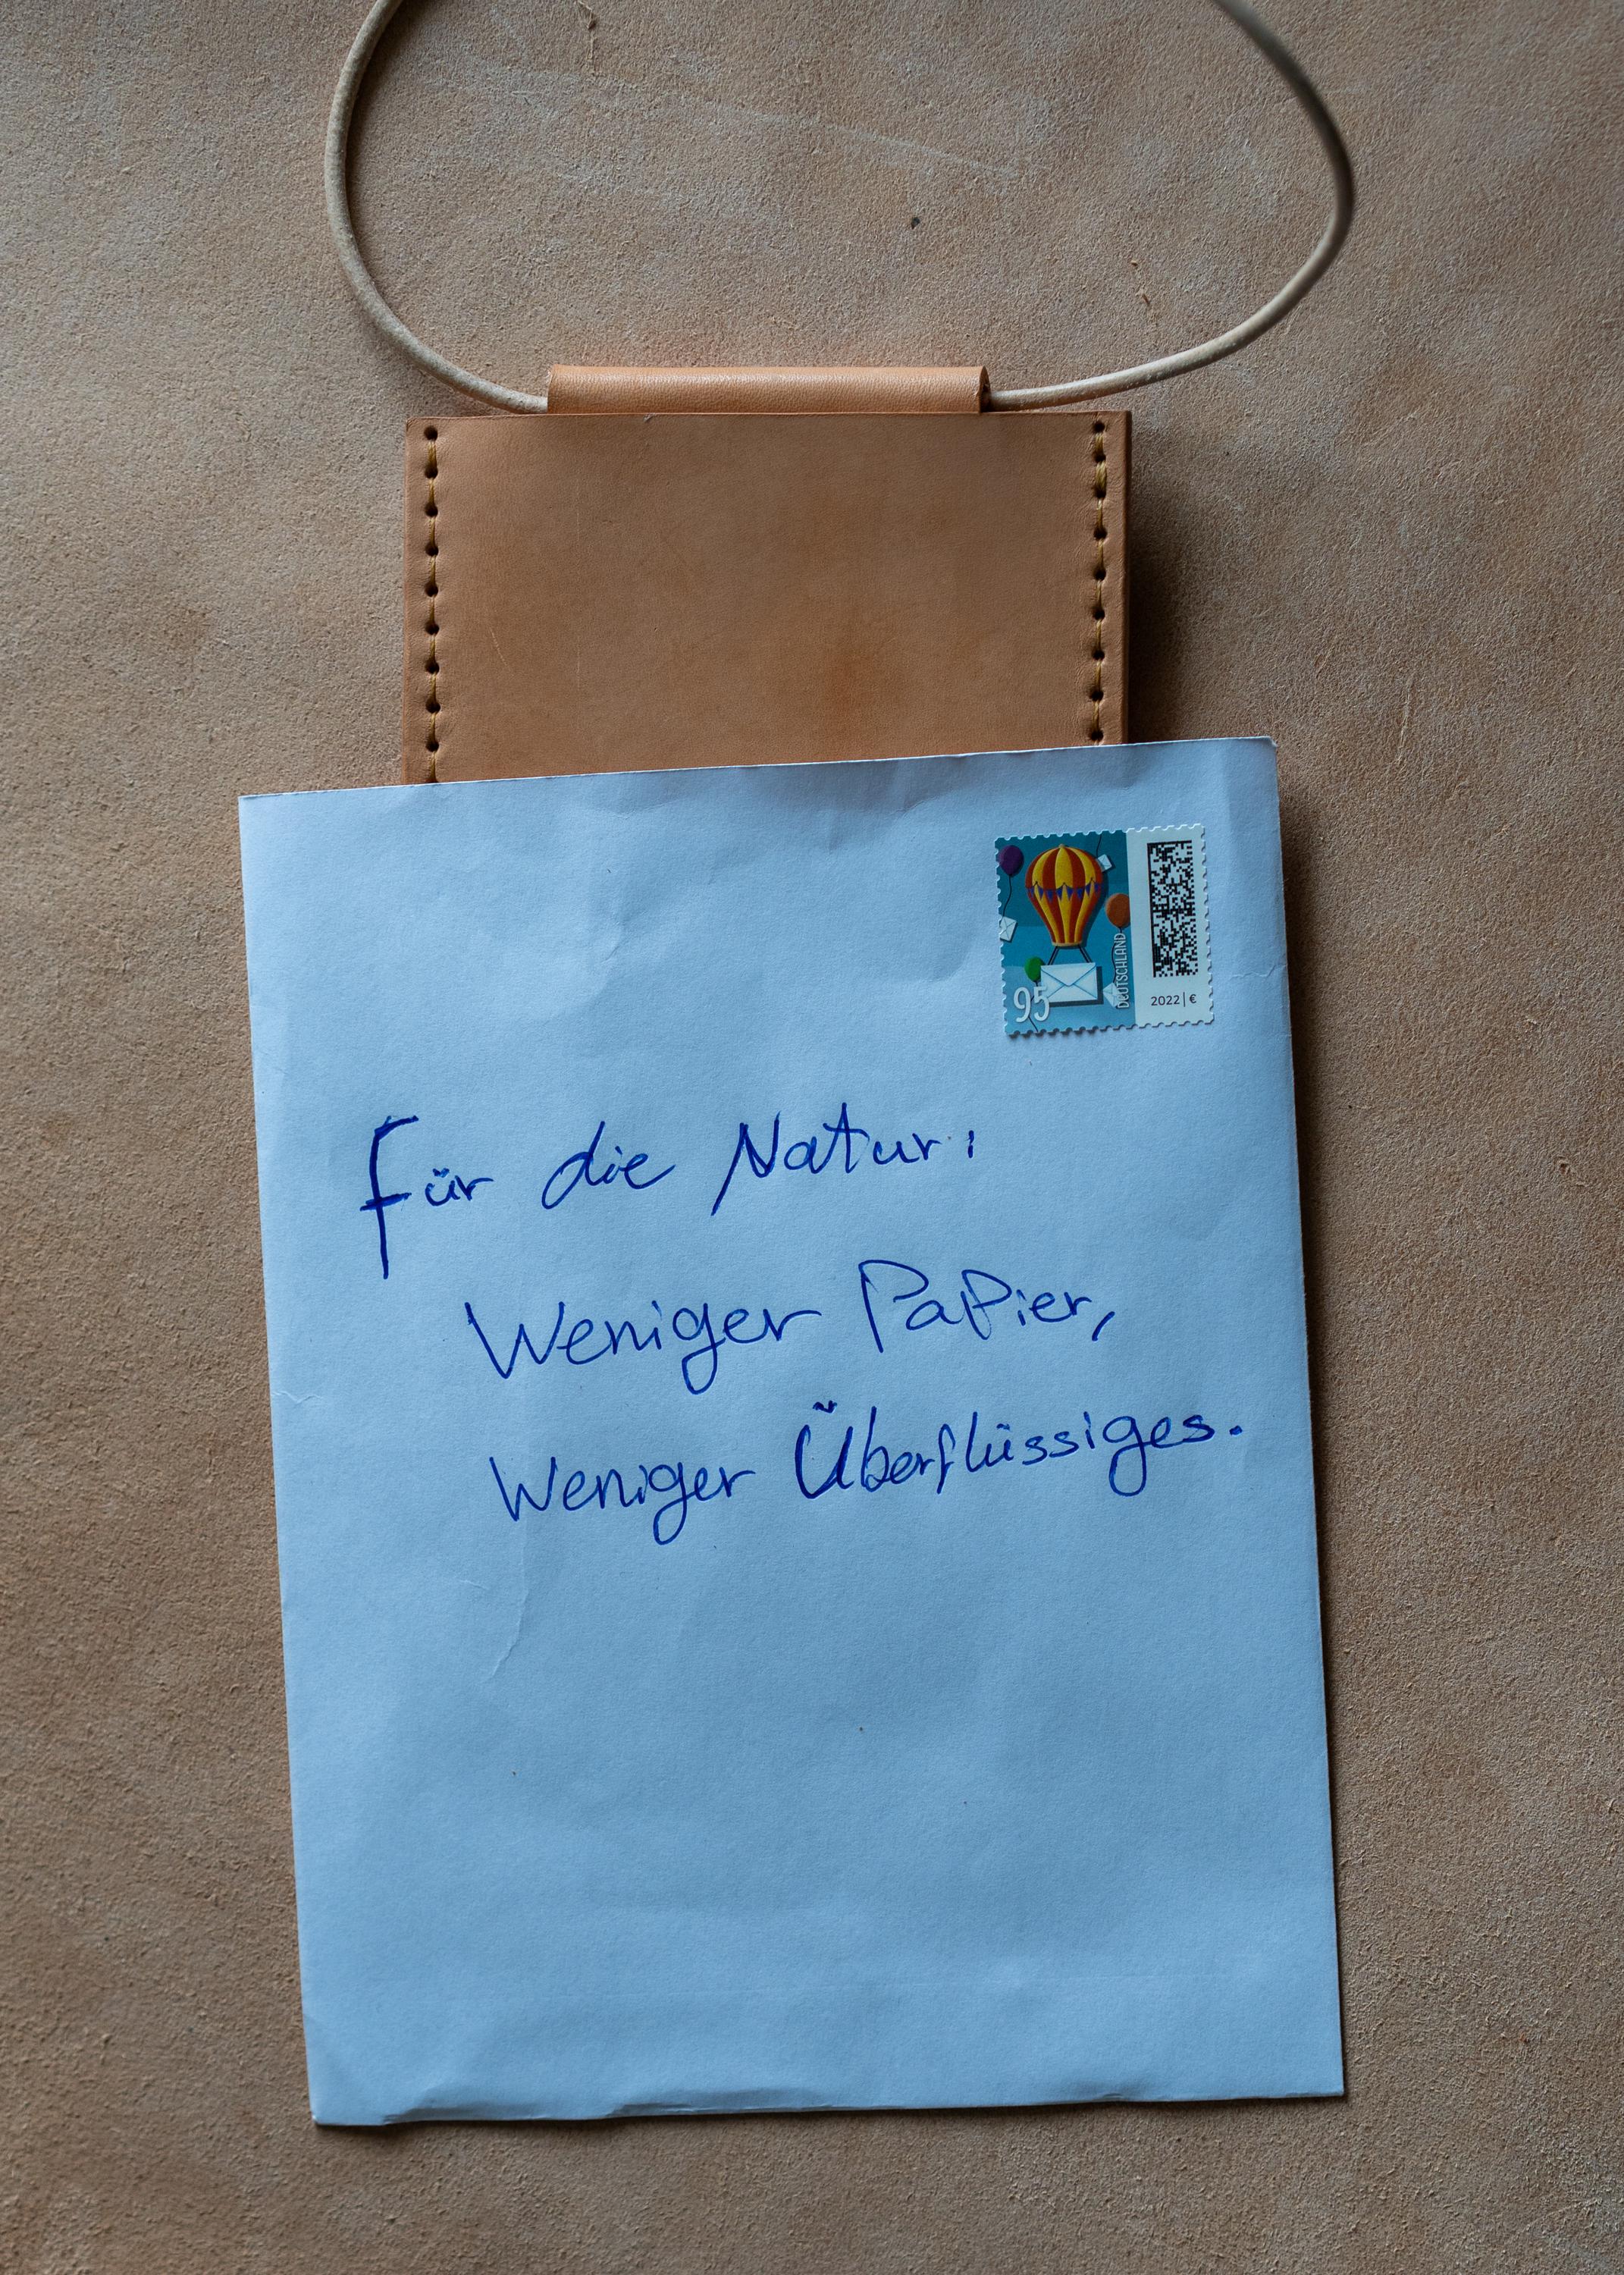 95
DEUTSCHLAND
2022 | €
Für die Natur:
Weniger Papier,
Weniger Überflüssiges.